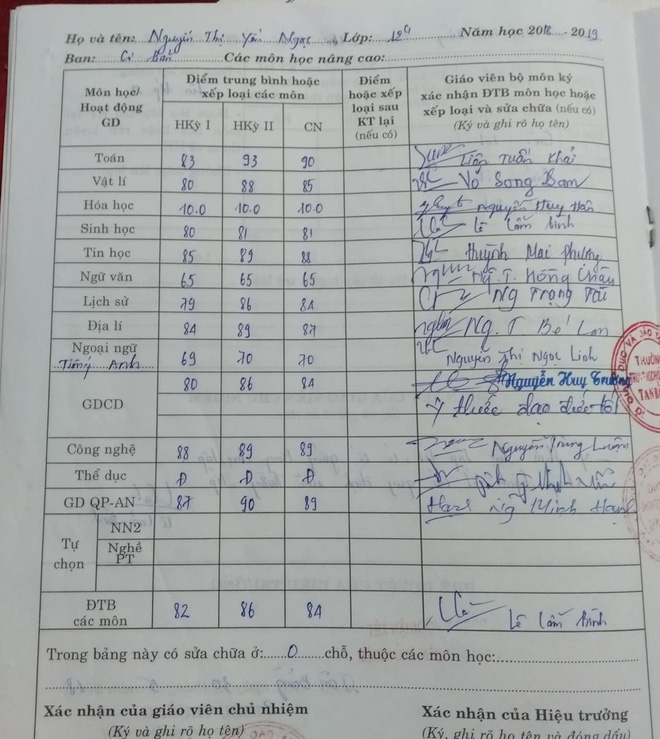 Họ và tên: Nguyễn Thị Yến Ngọc Lớp: 12 Năm học 2018 - 2019
Ban: Cơ Bản Các môn học nâng cao:
Môn học/ Hoạt động GD
Điểm trung bình hoặc xếp loại các môn
HKỳ I HKỳ II CN
Điểm hoặc xếp loại sau KT lại (nếu có)
Giáo viên bộ môn ký xác nhận ĐTB môn học hoặc xếp loại và sửa chữa (nếu có)
(Ký và ghi rõ họ tên)
Toán 83 93 90 Tuấn Khải
Vật lí 80 88 85 Võ Song Ban
Hóa học 10.0 10.0 10.0 Nguyễn Huy
Sinh học 80 81 81 Lê
Tin học 85 89 88 Huỳnh Mai Phương
Ngữ văn 65 65 65 T. Hồng
Lịch sử 79 86 84 Ng Trọng Tài
Địa lí 84 89 87 Ng. T Bé Lan
Ngoại ngữ Tiếng Anh 69 70 70 Nguyễn Thị Ngọc Linh
GDCD 80 86 84 Nguyễn Huy Trường
Ý thức đạo đức tốt
Công nghệ 88 89 89 Nguyễn Trung
Thể dục Đ Đ Đ
GD QP-AN 87 90 89 Ng Minh
Tự chọn
NN2
Nghề PT
ĐTB các môn 82 86 84 Lê
Trong bảng này có sửa chữa ở: 0 chỗ, thuộc các môn học:
Xác nhận của giáo viên chủ nhiệm
(Ký và ghi rõ họ tên)
Xác nhận của Hiệu trưởng
(Ký, ghi rõ họ tên và đóng dấu)